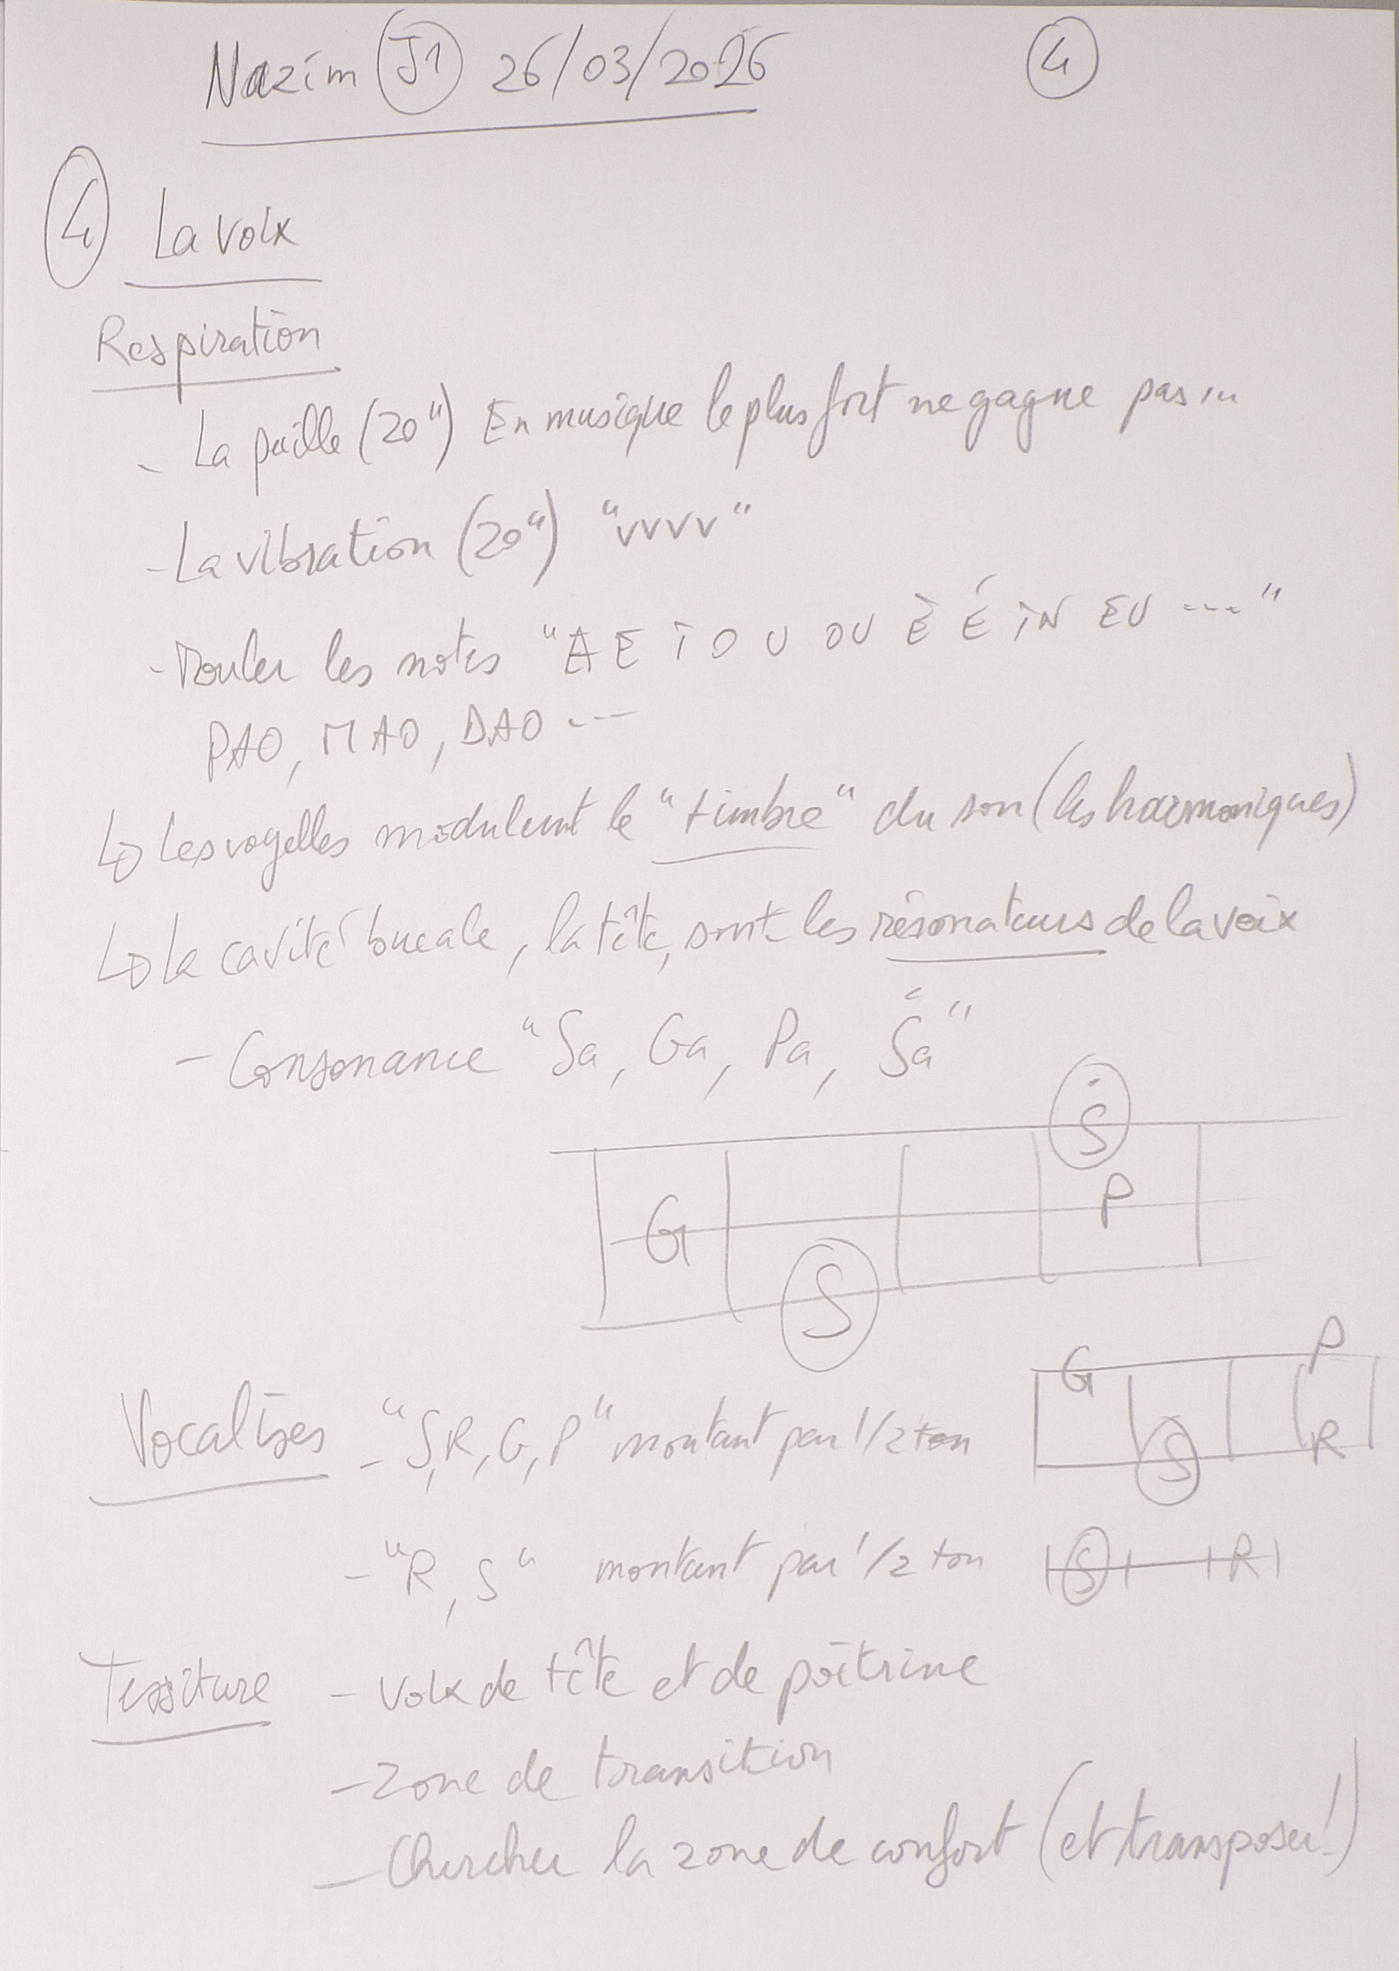 Nazim J1 26/03/2026 4
4 La voix
Respiration
- La paille (20") En musique le plus fort ne gagne pas...
- La vibration (20") "vvvv"
- Rouler les notes "A E I O U OU È É IN EU ---"
PAO, MAO, DAO ---
↳ Les voyelles modulent le "timbre" du son (les harmoniques)
↳ La cavité bucale, la tête, sont les résonateurs de la voix
- Consonance "Sa, Ga, Pa, Ṡa"
Ṡ
G P
S
Vocalises - "S, R, G, P" montant par 1/2 ton
G P
S R
- "R, S" montant par 1/2 ton
S R
Tessiture - Voix de tête et de poitrine
- Zone de transition
- Chercher la zone de confort (et transposer!)